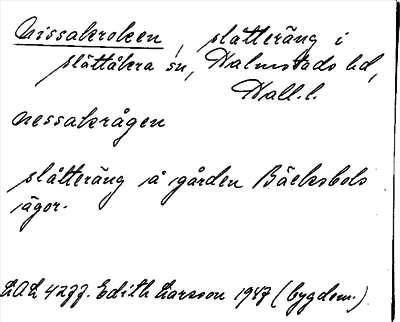 Nissakroken, slåtteräng i
Slättåkra sn, Halmstads hd,
Hall.l.
nessakrågen
slåtteräng å gården Bäcksbols
ägor.
LAL 4277. Edith Larsson 1947 (bygdem.)